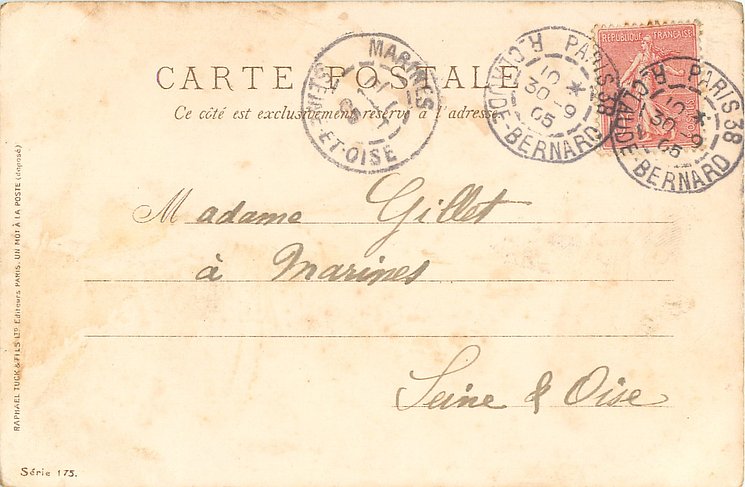 RÉPUBLIQUE FRANÇAISE
CARTE POSTALE
Ce côté est exclusivement réservé à l'adresse.
MARINES
SEINE-ET-OISE
PARIS 38
R. CLAUDE-BERNARD
30 -9
05
PARIS 38
R. CLAUDE-BERNARD
30 -9
05
Madame Gillet
à Marines
Seine & Oise
RAPHAEL TUCK & FILS LTD Editeurs PARIS. UN MOT À LA POSTE (déposé)
Série 175.